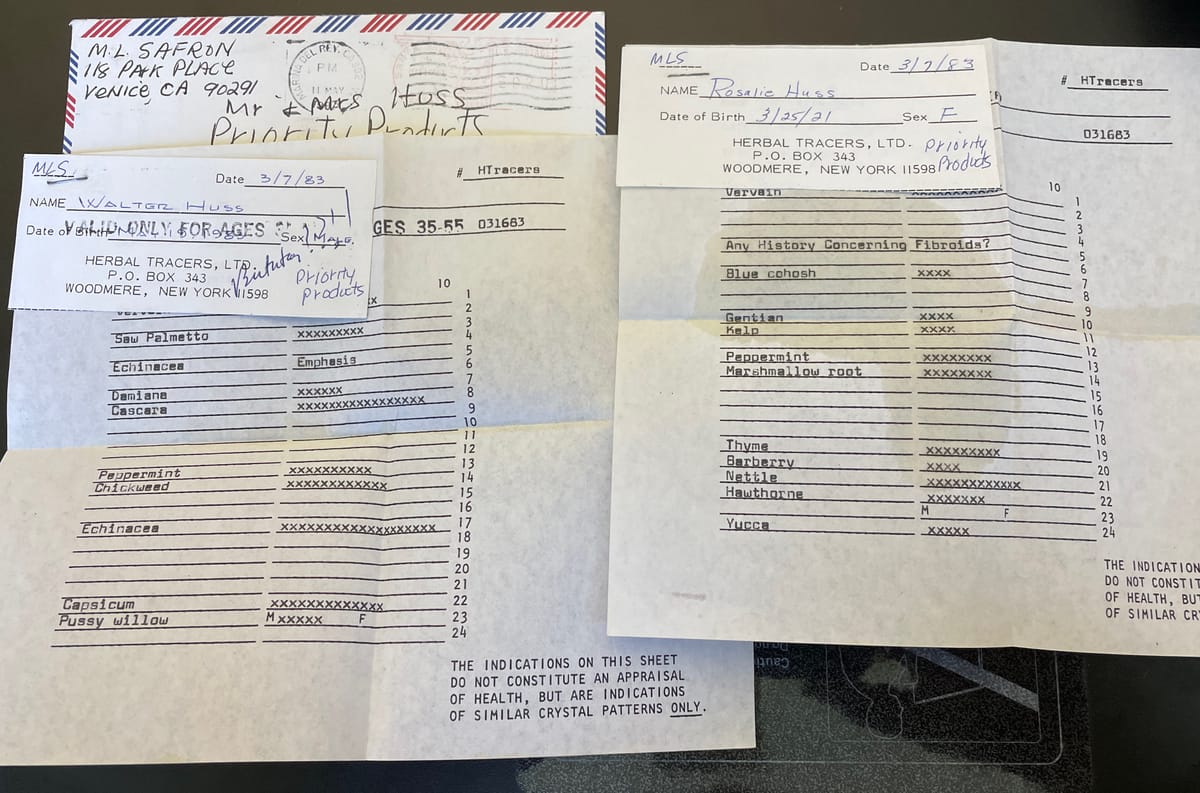 M.L. SAFRON
118 PARK PLACE
VENICE, CA 90291
MARINA DEL REY, CA 902
PM
11 MAY
Mr & MRS Huss
Priority Products
MLS
Date 3/7/83
NAME WALTER HUSS
VALID ONLY FOR AGES
Date of Birth MAY 19, Sex MALE
HERBAL TRACERS, LTD.
P.O. BOX 343
WOODMERE, NEW YORK 11598
Priority
Products
# HTracers
GES 35-55 031683
10
1
2
Saw Palmetto xxxxxxxxx 3
4
Echinacea Emphasis 5
6
Damiana xxxxxx 7
Cascara xxxxxxxxxxxxxxxxx 8
9
10
11
12
Peppermint xxxxxxxxxx 13
Chickweed xxxxxxxxxxxx 14
15
16
Echinacea xxxxxxxxxxxxxxxxxxx 17
18
19
20
21
Capsicum xxxxxxxxxxxxxx 22
Pussy willow M xxxxx F 23
24
THE INDICATIONS ON THIS SHEET
DO NOT CONSTITUTE AN APPRAISAL
OF HEALTH, BUT ARE INDICATIONS
OF SIMILAR CRYSTAL PATTERNS ONLY.
MLS
Date 3/7/83
NAME Rosalie Huss
Date of Birth 3/25/21 Sex F
HERBAL TRACERS, LTD.
P.O. BOX 343
WOODMERE, NEW YORK 11598
Priority
Products
# HTracers
031683
10
Vervain
1
2
3
Any History Concerning Fibroids? 4
5
Blue cohosh xxxx 6
7
8
Gentian xxxx 9
Kelp xxxx 10
11
Peppermint xxxxxxxx 12
Marshmallow root xxxxxxxx 13
14
15
16
17
Thyme xxxxxxxxx 18
Barberry xxxx 19
Nettle xxxxxxxxxxxx 20
Hawthorne xxxxxxx 21
M F 22
Yucca xxxxx 23
24
THE INDICATION
DO NOT CONSTIT
OF HEALTH, BUT
OF SIMILAR CR